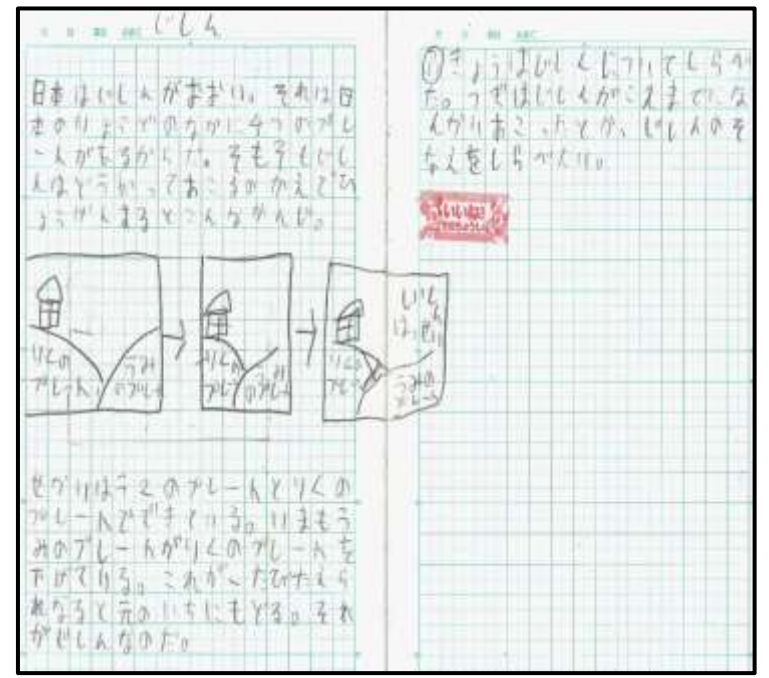 じしん
日本はじしんがおおい。それは日
本のりょうどのなかに4つのプレ
ートがあるからだ。そもそもじし
んはどうやっておこるのかえでひ
ょうげんするとこんなかんじ。
りくの
プレート
うみ
のプレート
りくの
プレート
うみ
のプレート
じしん
はっせい
りくの
プレート
うみの
プレート
せかいはうみのプレートとりくの
プレートでできている。いまもう
みのプレートがりくのプレートを
下げている。これが、たびたえら
れなると元のいちにもどる。それ
がじしんなのだ。
①きょうはじしんについてしらべ
た。つぎはじしんがこれまでにな
んかいおこったとか、じしんのそ
なえをしらべたい。
いいね!